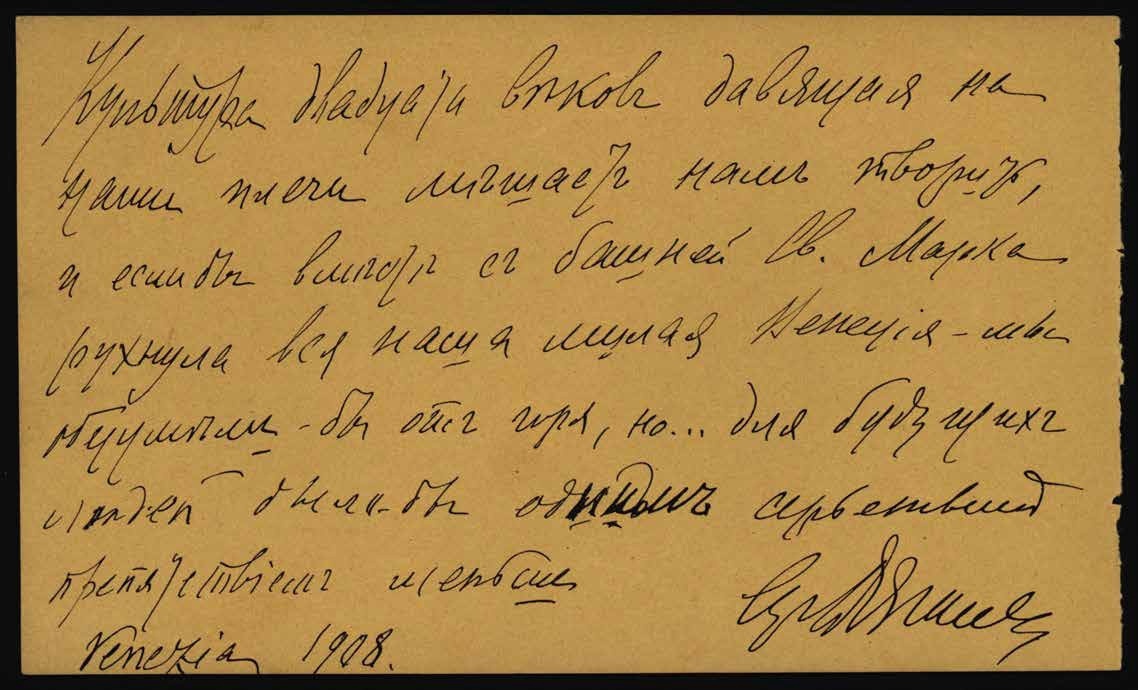 Культура двадцати вѣковъ давящая на
наши плечи мѣшаетъ намъ творить,
и еслибы вмѣстѣ съ башней Св. Марка
рухнула вся наша милая Венеція – мы
обезумѣли-бы отъ горя, но... для будущихъ
людей было-бы однимъ серьезнымъ
препятствіемъ меньше
Venezia 1908.